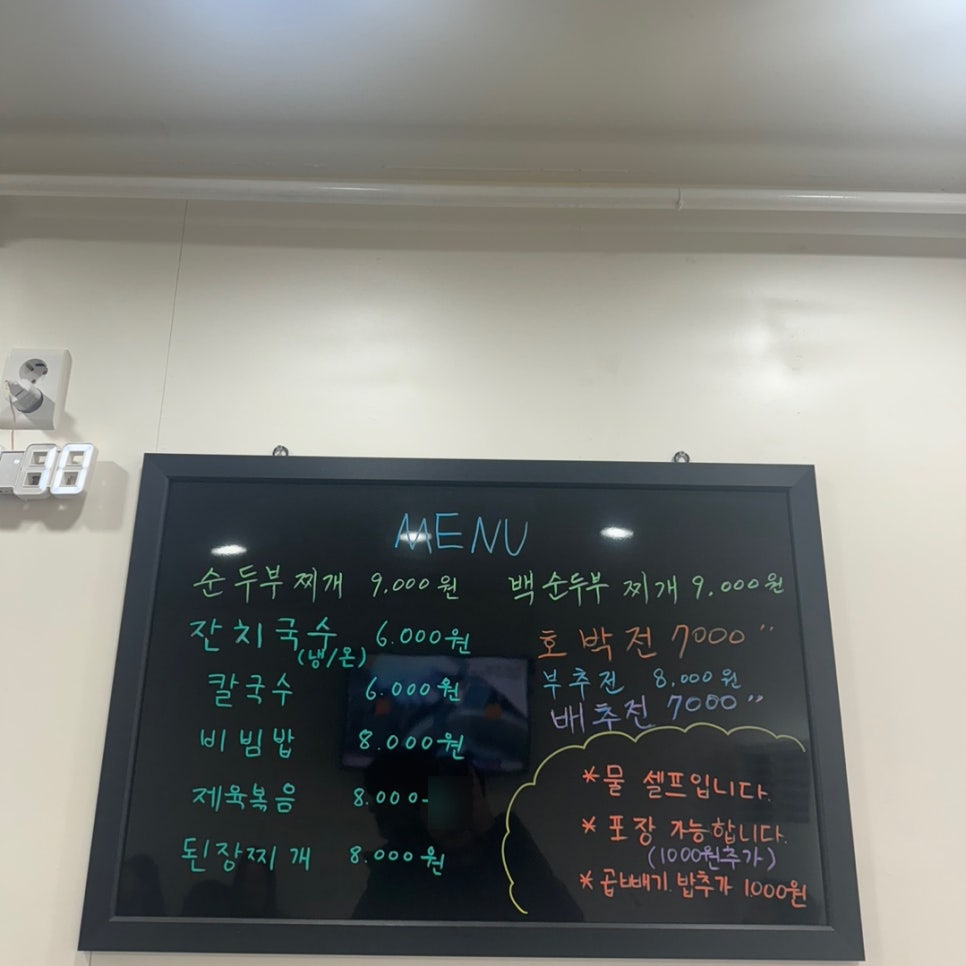 10
MENU
순두부찌개 9.000원
잔치국수 6.000원
(냉/온)
칼국수 6.000원
비빔밥 8.000원
제육볶음 8.000-
된장찌개 8.000원
백순두부 찌개 9.000원
호박전 7000 "
부추전 8.000원
배추전 7000 "
*물 셀프입니다.
* 포장 가능합니다.
(1000원추가)
* 곱빼기.밥추가 1000원